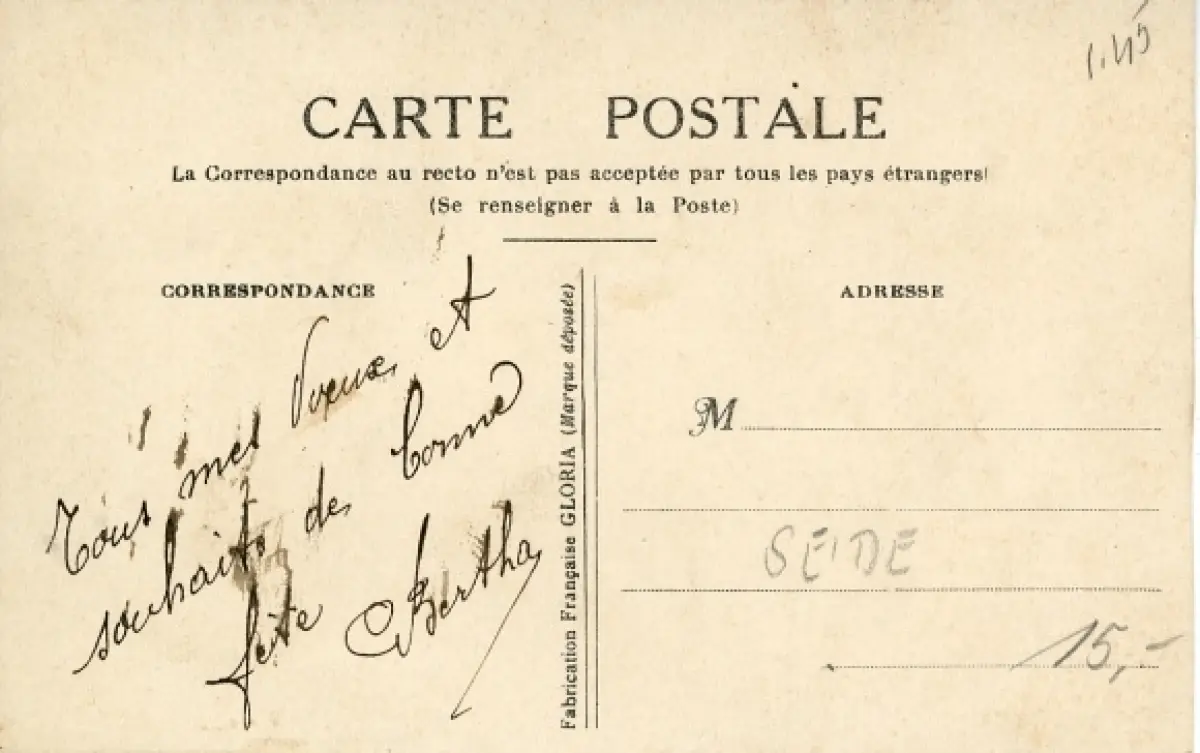 CARTE POSTALE
La Correspondance au recto n'est pas acceptée par tous les pays étrangers
(Se renseigner à la Poste)
CORRESPONDANCE
Tous mes Voeux et
souhaits de bonne
fête Bertha
Fabrication Française GLORIA (Marque déposée)
ADRESSE
M
SEIDE
15,-